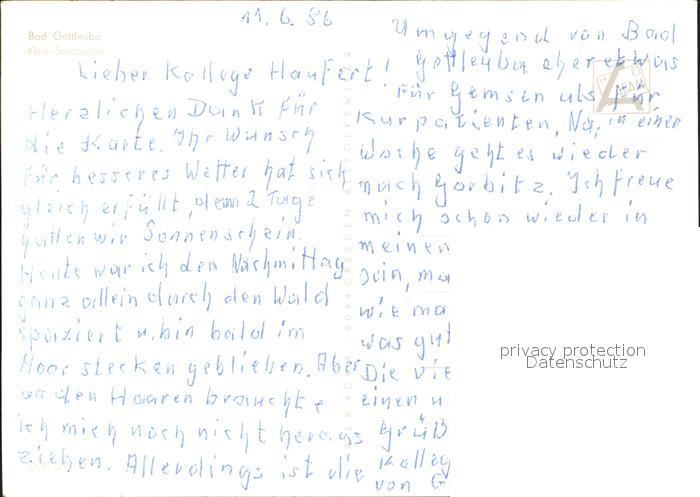 Bad Gottleuba
Klinik-Sanatorium
11. 6. 86
Lieber Kollege Haufert!
Herzlichen Dank für
die Karte. Ihr Wunsch
für besseres Wetter hat sich
gleich erfüllt, denn 2 Tage
hatten wir Sonnenschein.
Heute war ich den Nachmittag
ganz allein durch den Wald
spaziert u. bin bald im
Moor stecken geblieben. Aber
an den Haaren brauchte
ich mich noch nicht heraus
ziehen. Allerdings ist die
Umgegend von Bad
Gottleuba eher etwas
für Gemsen als für
Kurpatienten. Na, in einer
Woche geht es wieder
nach Gorbitz. Ich freue
mich schon wieder in
meinen
sein, ma
wie ma
was gut
Die vie
einen u
Grüß
Kolleg
von G
privacy protection
Datenschutz